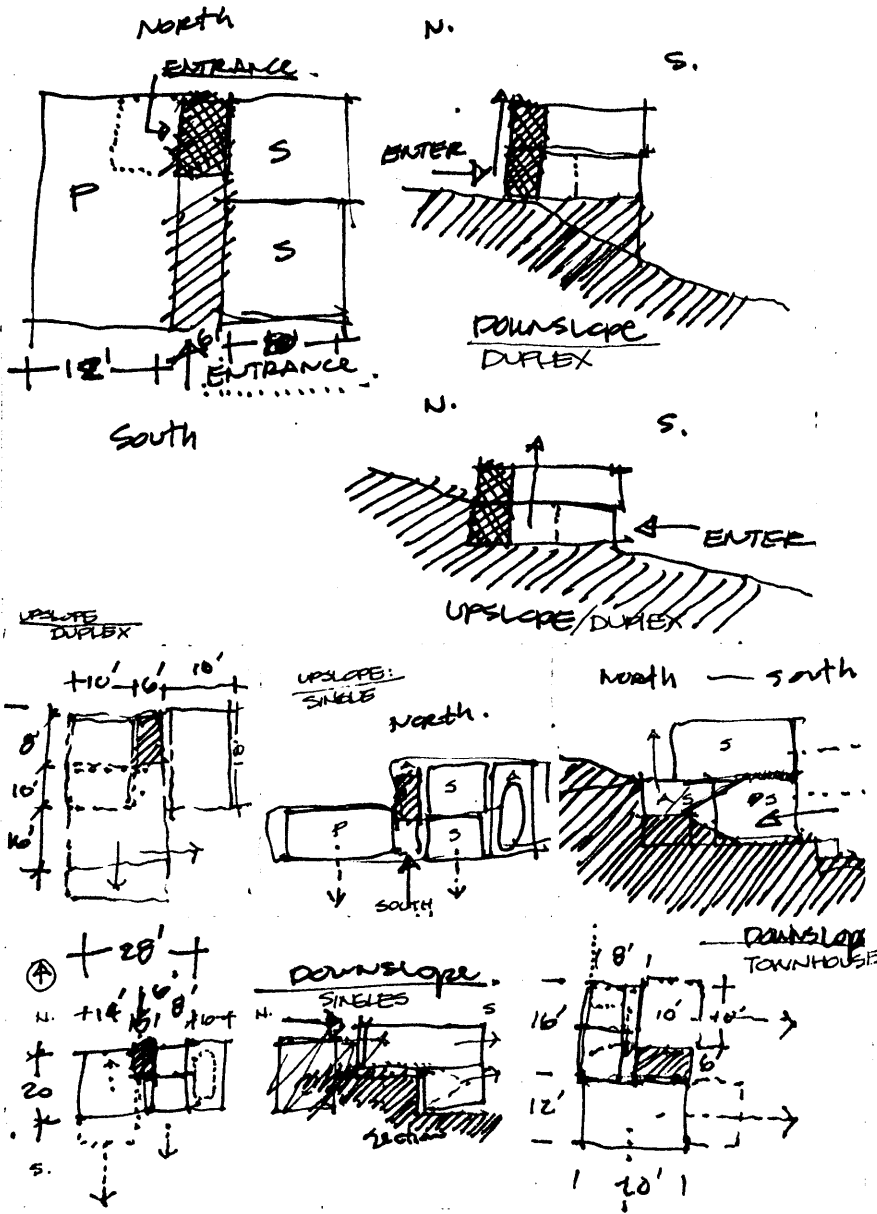 North
N.
S.
ENTRANCE.
ENTER
P
S
S
6'
12'
ENTRANCE
DOWNSLOPE
DUPLEX
South
N.
S.
ENTER
UPSLOPE/DUPLEX
UPSLOPE
DUPLEX
10'
6'
10'
8'
10'
16'
UPSLOPE:
SINGLE
North.
P
S
S
SOUTH
North — South
S
A/S
DOWNSLOPE
TOWNHOUSE
28'
N.
14'
6'
8'
20
S.
DOWNSLOPE
SINGLES
N.
S
Section
8'
16'
10'
6'
12'
20'